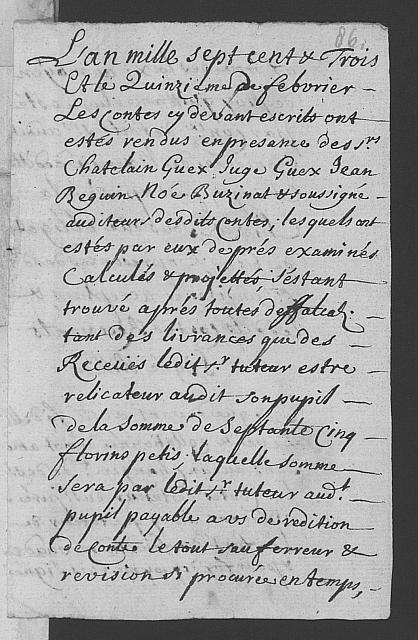 86.
L'an mille sept cent & Trois
Et le Quinzieme de febvrier –
Les Contes cy devant escrits ont
estés rendus en presance des Srs
Chatelain Guex Juge Guex Jean
Beguin Nôe Buzinat & soussigné
auditeurs desdits Contes, lesquels ont
estés par eux de prés examinés
Calculés & projettés, s'estant
trouvé aprés toutes deffalca-
tant des livrances que des –
Receües ledit Sr tuteur estre
relicateur audit son pupil –
de la Somme de Septante Cinq –
florins petis, laquelle somme –
sera par ledit Sr tuteur audt
pupil payable avs de redition
de Conte le tout sauf erreur &
revision si procurée en temps, –